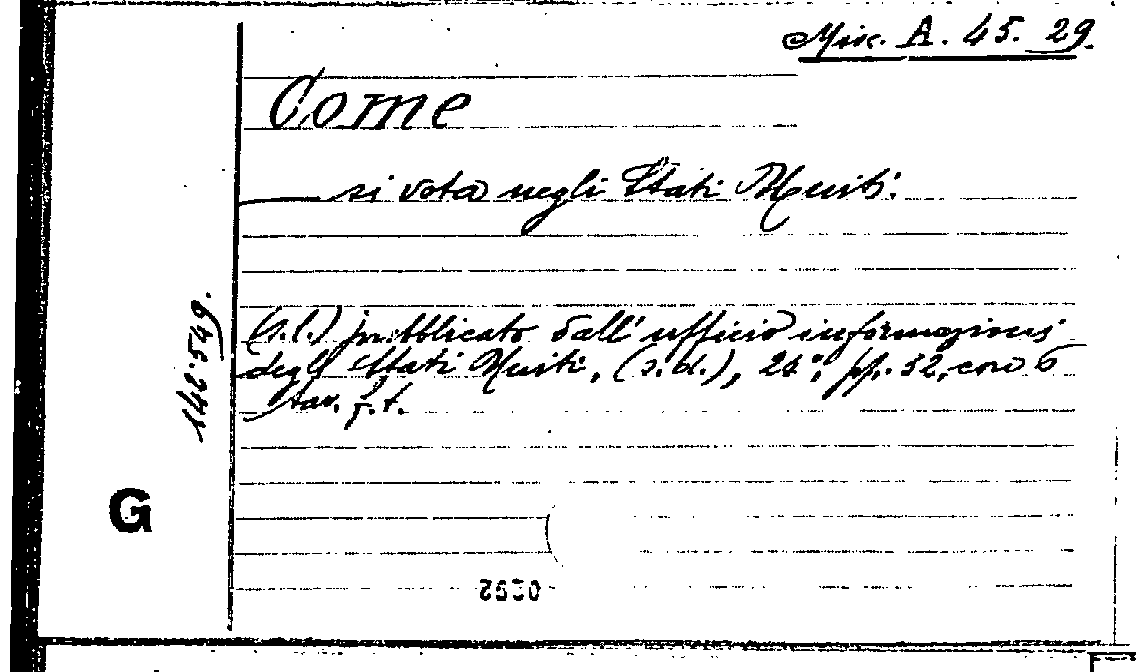 Misc. A. 45. 29.
Come
si vota negli Stati Uniti.
(s.l.) pubblicato dall' ufficio informazioni
degli Stati Uniti, (s.d.), 24°, pp. 32, con 6
tav. f.t.
142.549.
G